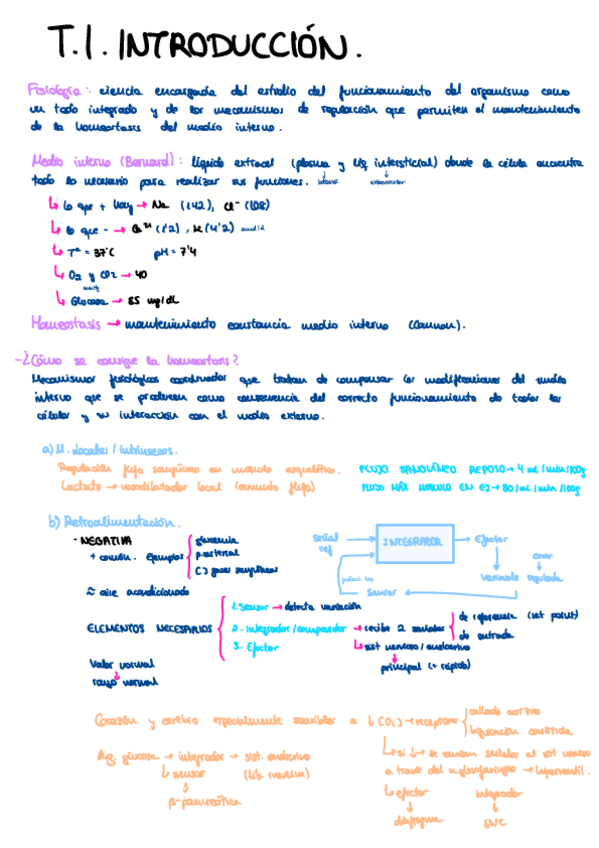 T.1. INTRODUCCIÓN.
Fisiología: ciencia encargada del estudio del funcionamiento del organismo como
un todo integrado y de los mecanismos de regulación que permiten el mantenimiento
de la homeostasis del medio interno.
Medio interno (Bernard): líquido extracel (plasma y líq intersticial) donde la célula encuentra
todo lo necesario para realizar sus funciones.
↳ lo que + hay → Na (142), Cl⁻ (108)
↳ lo que - → Ca²⁺ (1'2), K (4'2) mmol/L
↳ Tª = 37°C pH = 7'4
↳ O₂ y CO₂ → 40
mmHg
↳ Glucosa → 85 mg/dL
Homeostasis → mantenimiento constancia medio interno (Cannon).
- ¿Cómo se consigue la homeostasis?
Mecanismos fisiológicos coordinados que tratan de compensar las modificaciones del medio
interno que se producen como consecuencia del correcto funcionamiento de todas las
células y su interacción con el medio externo.
a) M. locales / intrínsecos.
Regulación flujo sanguíneo en músculo esquelético. FLUJO SANGUÍNEO REPOSO → 4 mL/min/100g
Lactato → vasodilatador local (aumento flujo) FLUJO MÁX MÚSCULO EN EJ → 80/mL/min/100g
b) Retroalimentación.
- NEGATIVA
+ común. Ejemplos
glucemia
p arterial
[] gases sanguíneos
Señal ref → INTEGRADOR → Efector
error
Variable regulada
Sensor
≈ aire acondicionado
ELEMENTOS NECESARIOS
1. Sensor → detecta variación
2. Integrador/comparador → recibe 2 señales
de referencia (set point)
de entrada
3. Efector
↳ sist nervioso/endocrino
principal (+ rápido)
Valor normal
↓
rango normal
Corazón y cerebro especialmente sensibles a ↓ (O₂) → receptores
callado aórtico
bifurcación carótida
↳ si ↓ → se envían señales al sist nervioso
a través del n glosofaríngeo → hiperventil.
↳ efector integrador
↓ ↓
diafragma SNC
Reg. glucosa → integrador → sist. endocrino
↳ sensor (lib insulina)
↓
β-pancreática